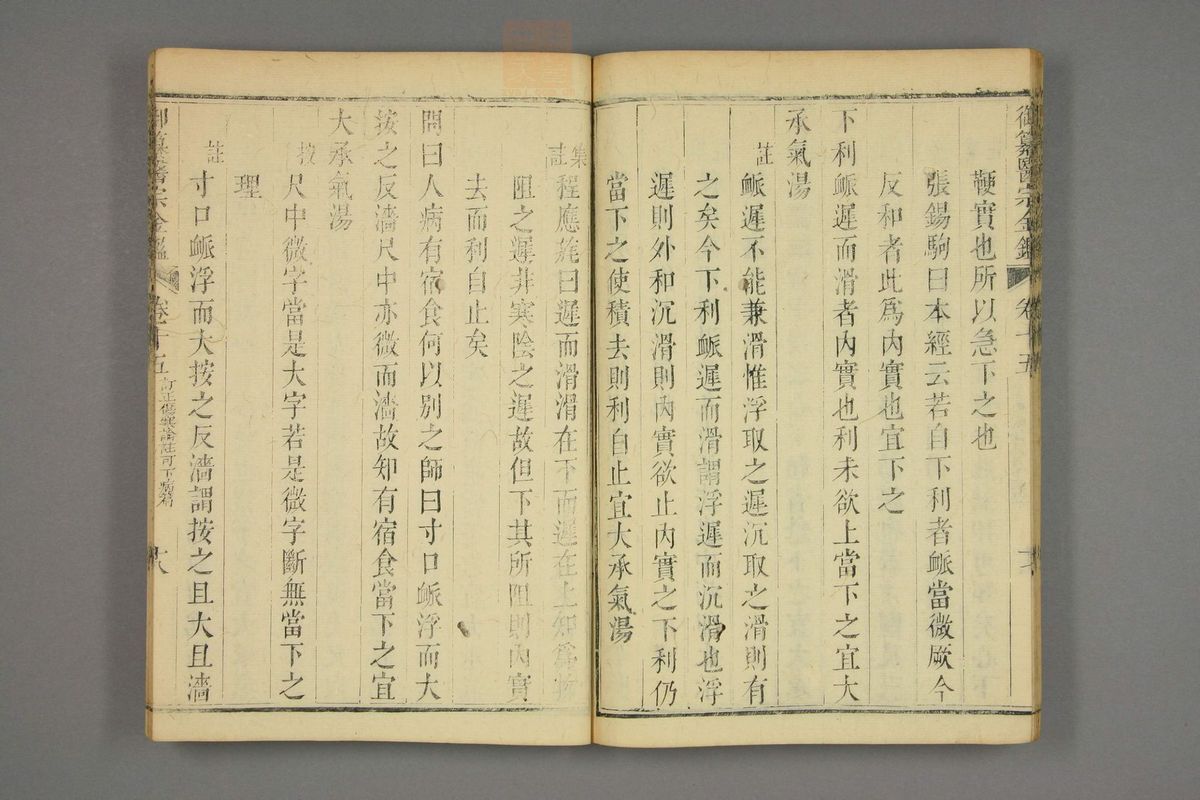 御纂醫宗金鑑 卷十五
鞕實也所以急下之也
張錫駒曰本經云若自下利者脈當微厥今
反和者此爲內實也宜下之
下利脈遲而滑者內實也利未欲止當下之宜大
承氣湯
註 脈遲不能兼滑惟浮取之遲沉取之滑則有
之矣今下利脈遲而滑謂浮遲而沉滑也浮
遲則外和沉滑則內實欲止內實之下利仍
當下之使積去則利自止宜大承氣湯
集註 程應旄曰遲而滑滑在下而遲在上知爲物
阻之遲非寒陰之遲故但下其所阻則內實
去而利自止矣
問曰人病有宿食何以別之師曰寸口脈浮而大
按之反濇尺中亦微而濇故知有宿食當下之宜
大承氣湯
按 尺中微字當是大字若是微字斷無當下之
理
註 寸口脈浮而大按之反濇謂按之且大且濇
御纂醫宗金鑑 卷十五 訂正傷寒論註可下病篇 十八